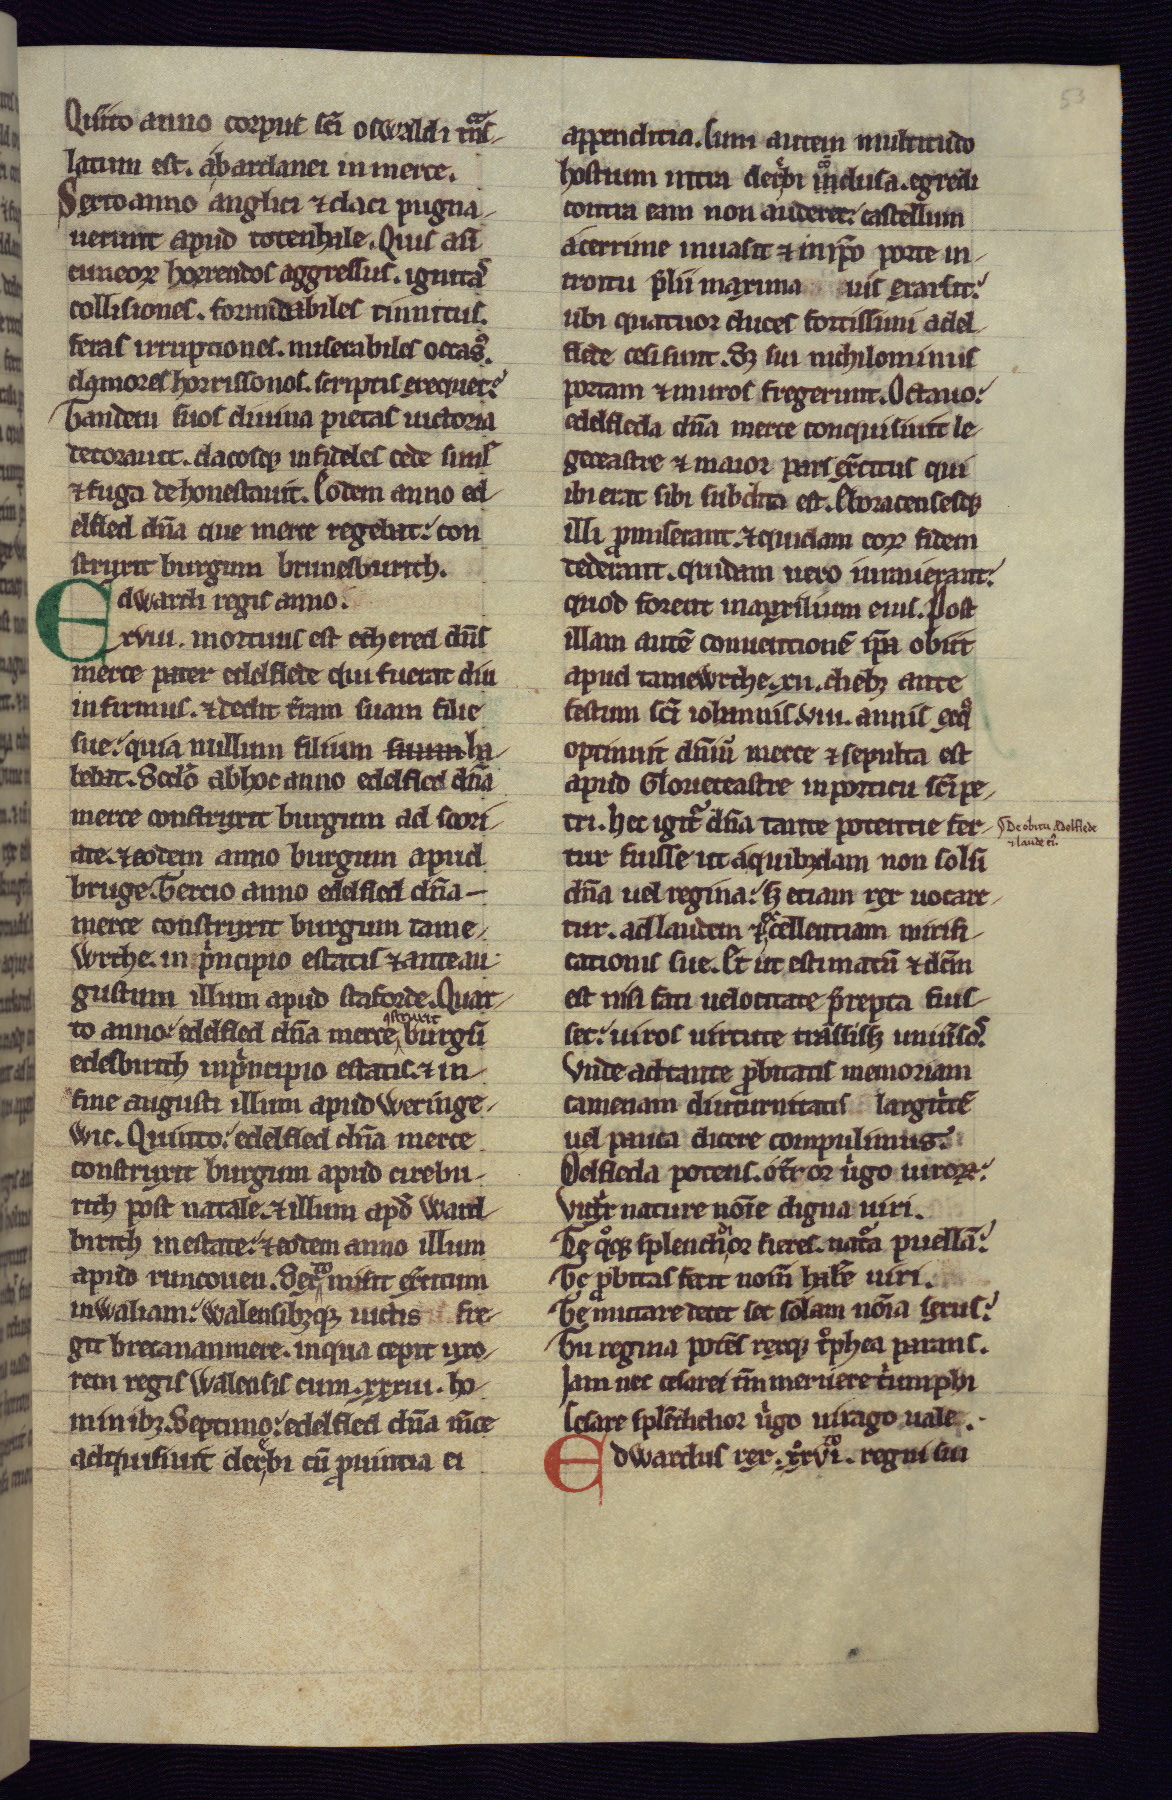 53
Quito anno corpus sci oswaldi tns-
latum est. abardanei in merce.
Sexto anno anglici ⁊ daci pugna-
uerunt apud totenhale. Quis aũ
cuneoꝝ horrendos aggressus. ignitas
collisiones. formidabiles tinnitus.
feras irruptiones. miserabiles occas᷒.
clamores horrissonos. scriptis exequet᷑?
Tandem suos diuina pietas uictoria
decorauit. dacosqꝫ infideles cede simĺ
⁊ fuga dehonestauit. Eodem anno ed-
elfled dn̄a que merce regebat: con
struxit burgum brunesburich.
Edwardi regis anno.
xviii. mortuus est edhered dn̄s
merce pater edelflede qui fuerat diu
infirmus. ⁊ dedit t̃ram suam filie
sue: quia nullum filium suum ha-
bebat. Scdõ abhoc anno edelfled dn̄a
merce construxit burgum ad scori-
ate. ⁊ eodem anno burgum apud
bruge. Tercio anno edelfled dn̄a
merce construxit burgum tame-
wrche. in pͥncipio estatis ⁊ ante au-
gustum illum apud staforde. Quar-
to anno: edelfled dn̄a merce ꝯstruxit burgũ
edesbirich in pͥncipio estatis. ⁊ in
fine augusti illum apud weringe-
wic. Quinto: edelfled dn̄a merce
construxit burgum apud cirebu-
rich post natale. ⁊ illum apď ward-
birich in estate: ⁊ eodem anno illum
apud runcouen. Sexto misit ex̃citum
in waliam: walensibꝫqꝫ uictis fre-
git brecananmere. in qua cepit uxo-
rem regis walensis cum .xxxiii. ho-
minibꝫ. Septimo: edelfled dn̄a m̃ce
adquisiuit derebi cũ ꝓuintia ei
appendicia. Cum autem multitudo
hostium intra derebi inclusa. egredi
contra eam non auderet: castellum
acerrime inuasit ⁊ in ip̃o porte in-
troitu p̃lii maxima uis exarsit:
ubi quatuor duces fortissimi adel-
flede cesi sunt. Sꝫ sui nichilominus
portam ⁊ muros fregerunt. Octauo:
edelfleda dn̄a merce conquisiuit le-
geceastre ⁊ maior pars ex̃citus qui
ibi erat sibi subdita est. Eboracensesqꝫ
illi ꝓmiserant. ⁊ quidam eoꝝ fidem
dederant. quidam uero iurauerant:
quod forent in auxilium eius. Post
illam autẽ conuentionẽ ip̃a obiit
apud tamewrthe. xii. diebꝫ ante
festum sc̃i iohannis. viii. annis ex qͦ
optinuit dn̄iũ merce ⁊ sepulta est
apud Gloueceastre in porticu sc̃i pe-
tri. hec igit᷑ dn̄a tante potentie fer-
tur fuisse ut a quibꝫdam non solũ
dn̄a uel regina: sꝫ etiam rex uocare-
tur. ad laudem ⁊ excellentiam mirifi-
cationis sue. Et ut estimatũ ⁊ dc̃m
est nisi fati uelocitate p̃repta fuis-
set: uiros uirtute trãssissꝫ uniũsos.
Vnde ad tante ꝓbitatis memoriam
camenam diuturnitatis largitͥcẽ
uel pauca dicere compulimus:
Oelfleda potens. o tr̃or uͥgo uiroꝝ:
Victͥx nature noĩe digna uiri.
Te qͦqꝫ splendidior fieres. natͣa puellã:
Te ꝓbitas fecit nom̃ hab̃e uiri.
Te mutare decet set solam noĩa sexus:
Tu regina potẽs rexqꝫ tͦphea parans.
Iam nec cesarei tm̃ meruere tͥumphi
Cesare splẽdidior uͥgo uirago uale.
Edwardus rex. xxviͦ. regni sui
De obitu Ædelflede
⁊ laude ei᷒.